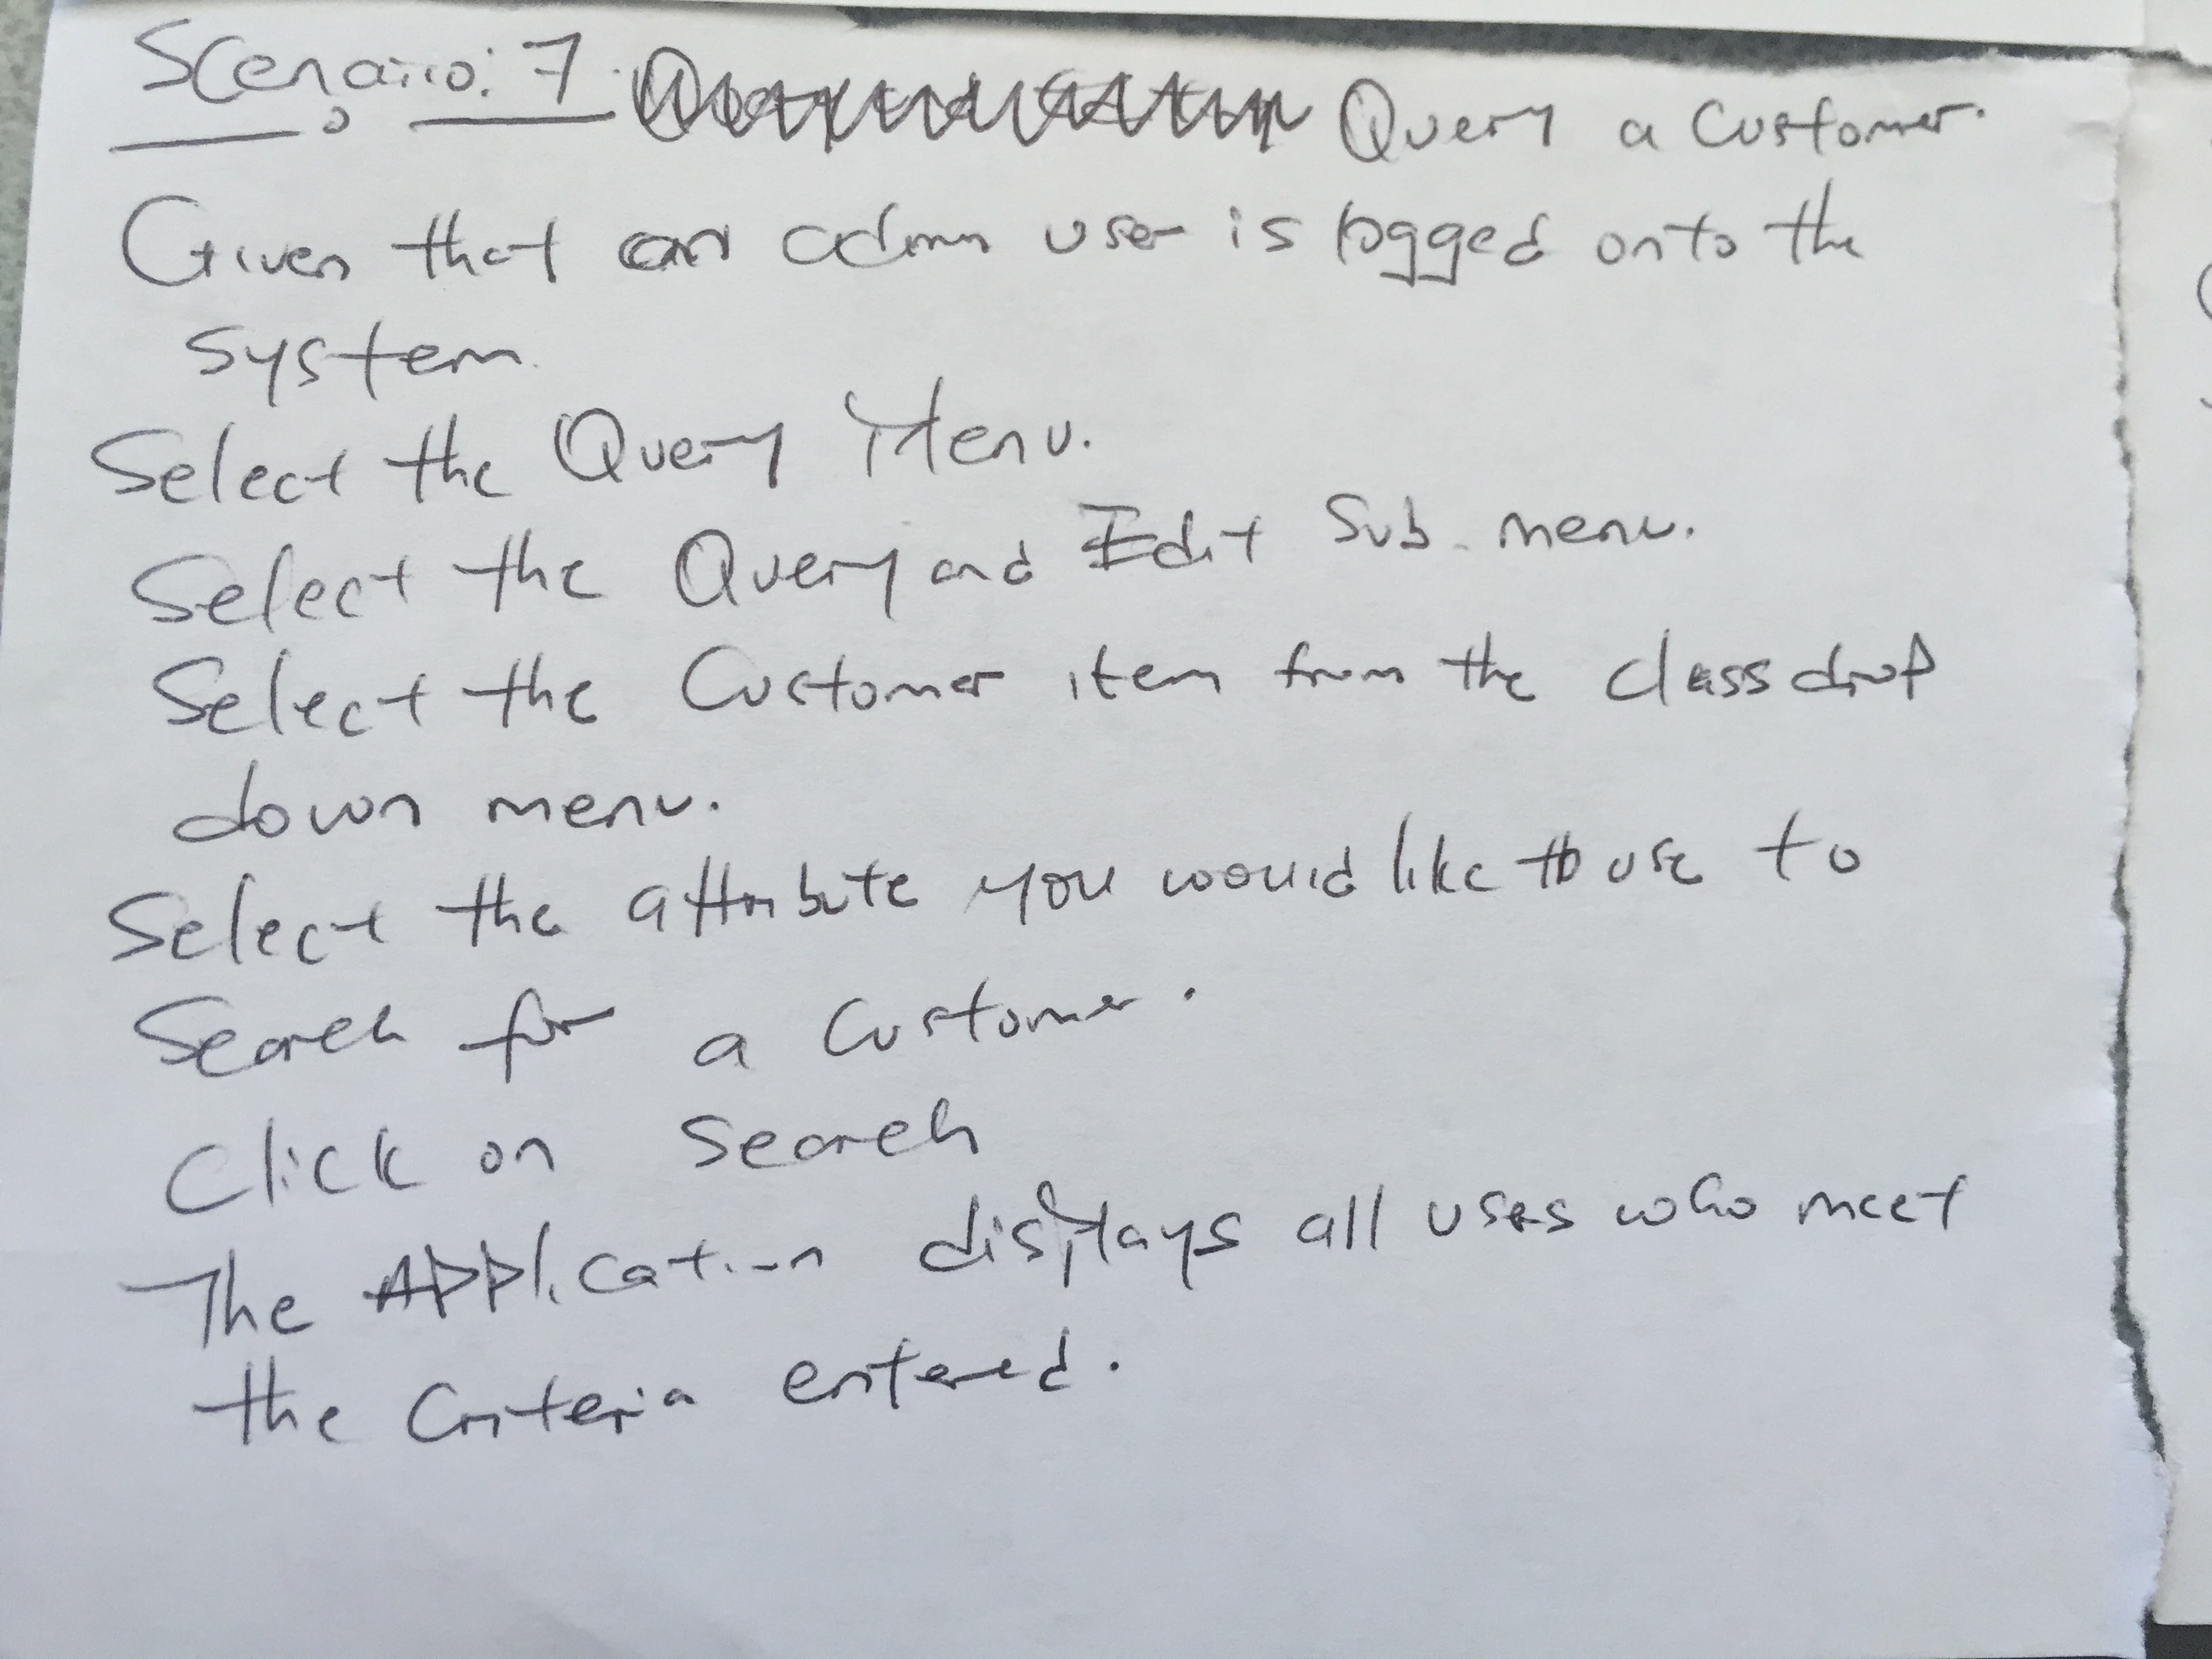 Scenario: 7. Query a Customer.
Given that an admin user is logged onto the
system.
Select the Query Menu.
Select the Query and Edit Sub-menu.
Select the Customer item from the class drop
down menu.
Select the attribute you would like to use to
Search for a Customer.
Click on Search
The Application displays all users who meet
the Criteria entered.